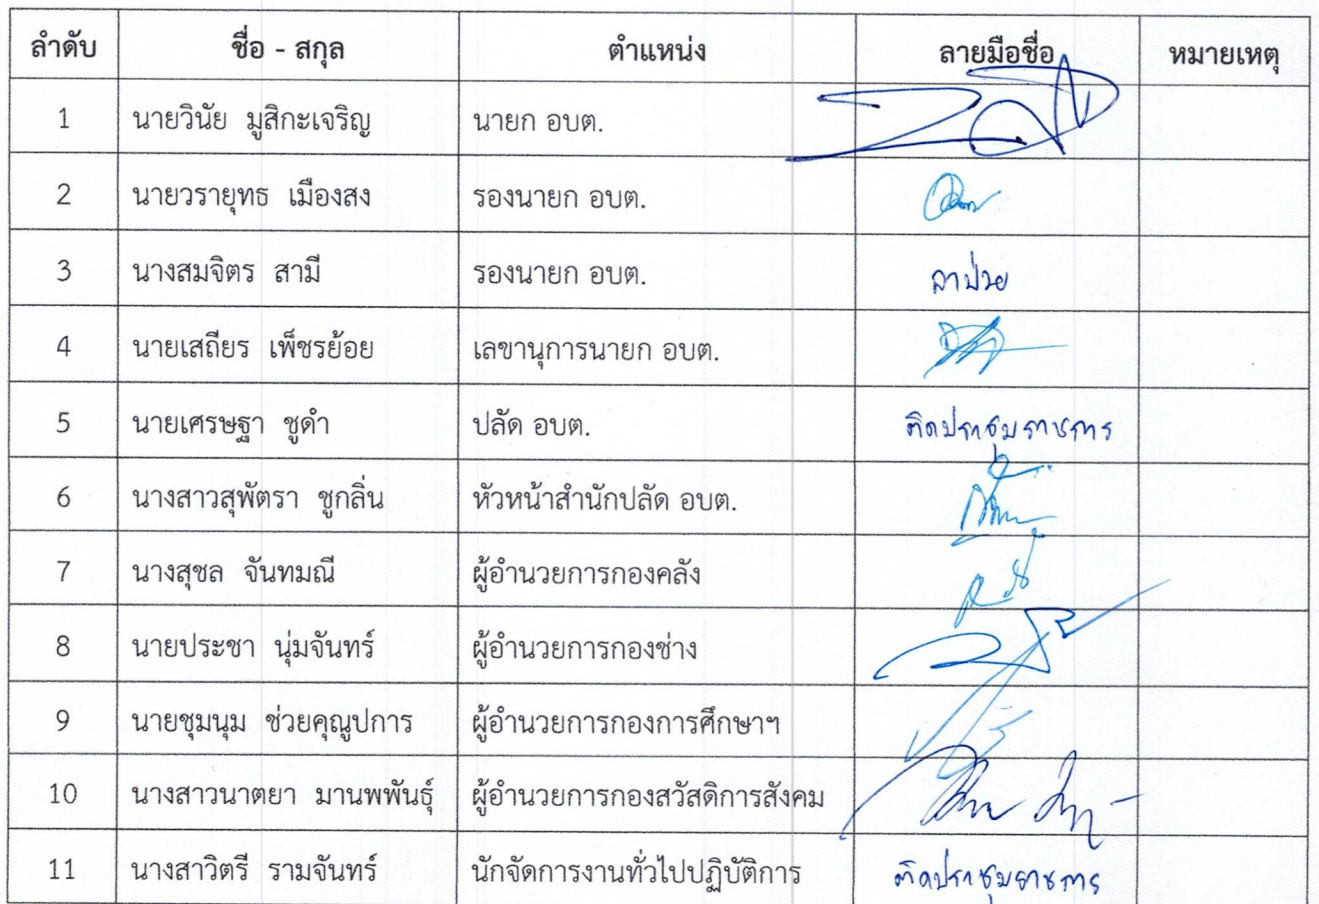 ลำดับ ชื่อ - สกุล ตำแหน่ง ลายมือชื่อ หมายเหตุ
1 นายวินัย มูสิกะเจริญ นายก อบต.
2 นายวรายุทธ เมืองสง รองนายก อบต.
3 นางสมจิตร สามี รองนายก อบต. ลาป่วย
4 นายเสถียร เพ็ชรย้อย เลขานุการนายก อบต.
5 นายเศรษฐา ชูดำ ปลัด อบต. ติดประชุมราชการ
6 นางสาวสุพัตรา ชูกลิ่น หัวหน้าสำนักปลัด อบต.
7 นางสุชล จันทมณี ผู้อำนวยการกองคลัง
8 นายประชา นุ่มจันทร์ ผู้อำนวยการกองช่าง
9 นายชุมนุม ช่วยคุณูปการ ผู้อำนวยการกองการศึกษาฯ
10 นางสาวนาตยา มานพพันธุ์ ผู้อำนวยการกองสวัสดิการสังคม
11 นางสาวิตรี รามจันทร์ นักจัดการงานทั่วไปปฏิบัติการ ติดประชุมราชการ